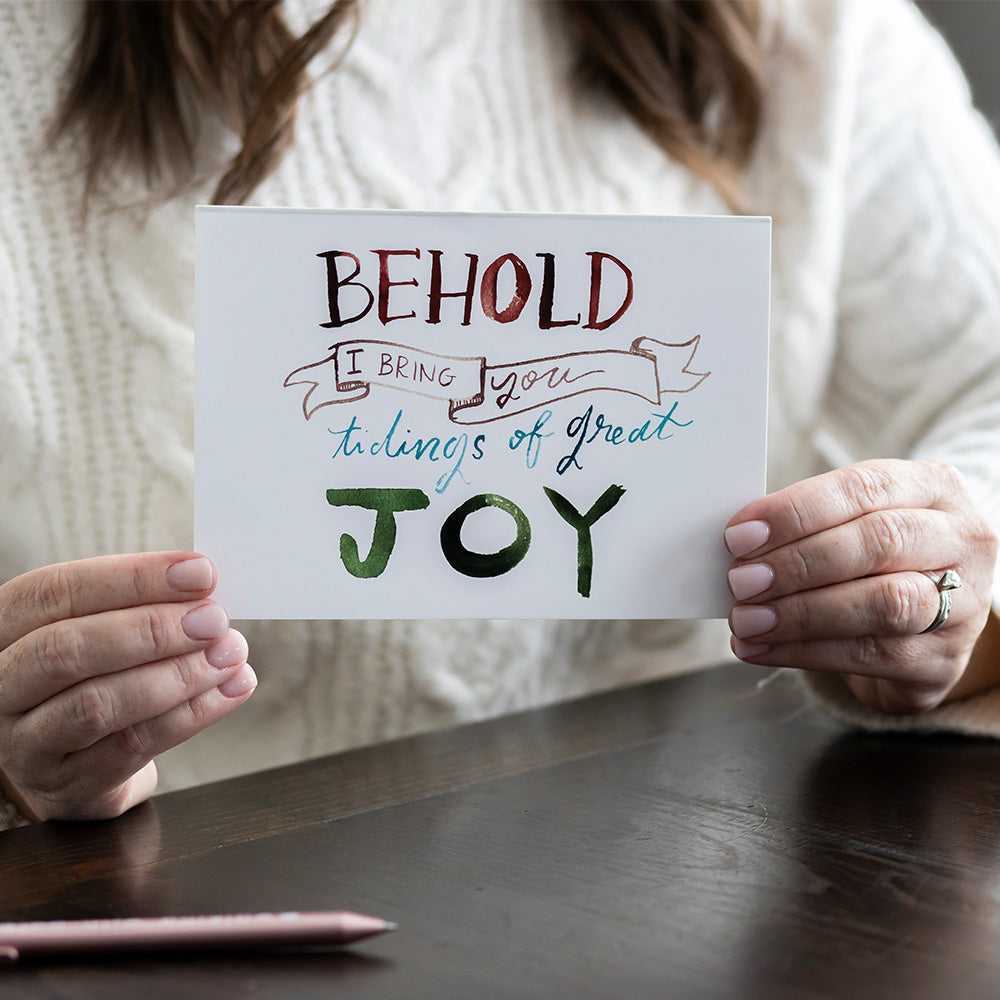 BEHOLD
I BRING you
tidings of great
JOY